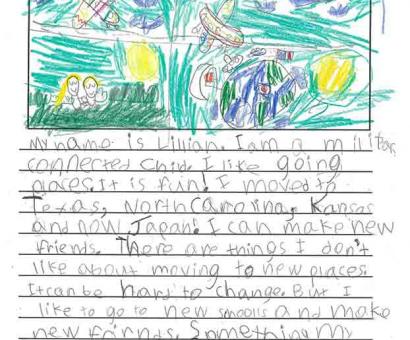 my name is Lillian. I am a militar
connected child. I like going
places. It is fun! I moved to
Texas, North Carolina, Kansas
and now Japan! I can make new
friends. There are things I don't
like about moving to new places.
It can be hard to change. But I
like to go to new smools and make
new frirnds. Something my